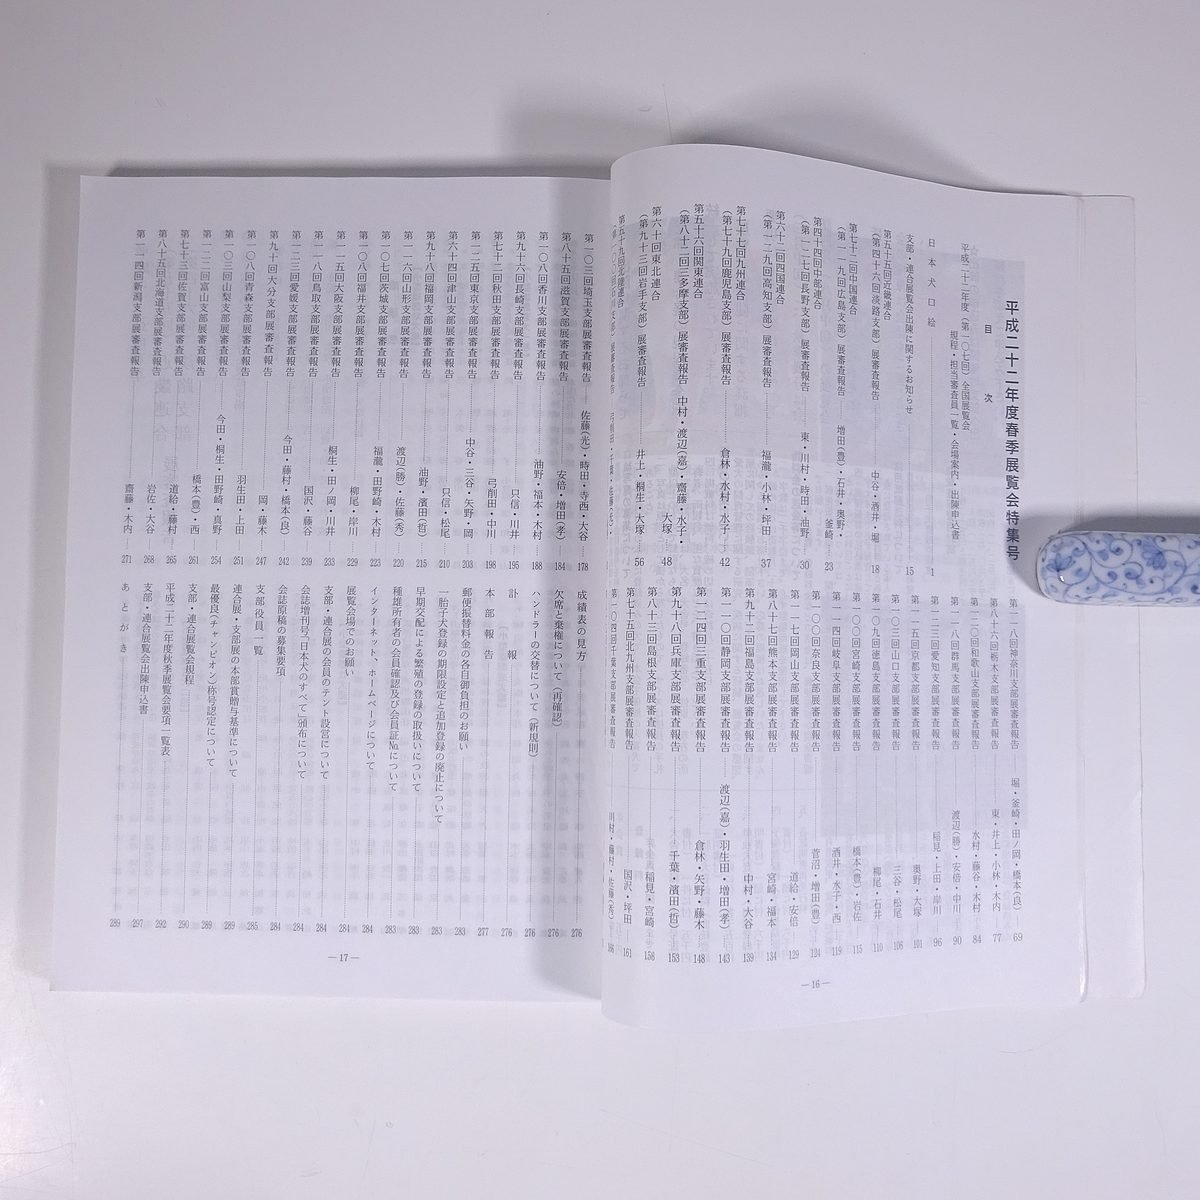 平成二十二年度春季展覧会特集号
目次
平成二十二年度(第一〇七回)全国展覧会
規程・担当審査員一覧・会場案内・出陳申込書
日本犬口絵 1
支部・連合展覧会出陳に関するお知らせ 15
第五十五回近畿連合
(第四十六回淡路支部)展審査報告 中谷・酒井・堀 18
第七十二回中国連合
(第一一九回広島支部)展審査報告 増田(豊)・石井・奥野・釜崎 23
第四十四回中部連合
(第一二七回長野支部)展審査報告 東・川村・時田・油野 30
第六十二回四国連合
(第一二九回高知支部)展審査報告 福瀧・小林・坪田 37
第七十七回九州連合
(第七十九回鹿児島支部)展審査報告 倉林・水村・水子 42
第五十六回関東連合
(第八十二回三多摩支部)展審査報告 中村・渡辺(嘉)・齋藤・水子・大塚 48
第六十回東北連合
(第九十三回岩手支部)展審査報告 井上・桐生・大塚 56
第五十九回北陸連合
第一一八回神奈川支部展審査報告 堀・釜崎・田ノ岡・橋本(良) 69
第八十六回栃木支部展審査報告 東・井上・小林・木内 77
第一二〇回和歌山支部展審査報告 水村・藤谷・木村 84
第一一八回群馬支部展審査報告 渡辺(勝)・安倍・中川 90
第一二三回愛知支部展審査報告 稲見・上田・岸川 96
第一一五回京都支部展審査報告 奥野・大塚 101
第一〇三回山口支部展審査報告 三谷・松尾 106
第一〇九回徳島支部展審査報告 柳尾・石井 110
第一〇〇回宮崎支部展審査報告 橋本(豊)・岩佐 115
第一一四回岐阜支部展審査報告 酒井・水子・西 119
第一〇〇回奈良支部展審査報告 菅沼・増田(豊) 124
第一一七回岡山支部展審査報告 道給・安倍 129
第八十七回熊本支部展審査報告 宮崎・福本 134
第九十一回福島支部展審査報告 中村・大谷 139
第一一〇回静岡支部展審査報告 渡辺(嘉)・羽生田・増田(孝) 143
第一二四回三重支部展審査報告 倉林・矢野・藤木 148
第九十八回兵庫支部展審査報告 千葉・濱田(哲) 153
第八十三回島根支部展審査報告 稲見・宮崎 158
第七十五回北九州支部展審査報告 国沢・坪田 161
第一〇四回千葉支部展審査報告 川村・藤村・佐藤(秀) 166
—16—
第一〇三回埼玉支部展審査報告 佐藤(光)・時田・寺西・大谷 178
第八十五回滋賀支部展審査報告 安倍・増田(孝) 184
第一〇八回香川支部展審査報告 油野・福本・木村 188
第九十六回長崎支部展審査報告 只信・川井 195
第七十二回秋田支部展審査報告 弓削田・中川 198
第一二五回東京支部展審査報告 中谷・三谷・矢野・岡 203
第六十四回津山支部展審査報告 只信・松尾 210
第九十八回福岡支部展審査報告 油野・濱田(哲) 215
第一一六回山形支部展審査報告 渡辺(勝)・佐藤(秀) 220
第一〇七回茨城支部展審査報告 福瀧・田野崎・木村 223
第一〇八回福井支部展審査報告 柳尾・岸川 229
第一一五回大阪支部展審査報告 桐生・田ノ岡・川井 233
第一一八回鳥取支部展審査報告 国沢・藤谷 239
第一二三回愛媛支部展審査報告 今田・藤村・橋本(良) 242
第九十回大分支部展審査報告 岡・藤木 247
第一〇八回青森支部展審査報告 羽生田・上田 251
第一〇三回山梨支部展審査報告 今田・桐生・田野崎・真野 254
第一二三回富山支部展審査報告 橋本(豊)・西 261
第七十三回佐賀支部展審査報告 道給・藤村 265
第八十五回北海道支部展審査報告 岩佐・大谷 268
第一一四回新潟支部展審査報告 齋藤・木内 271
成績表の見方 276
欠席と棄権について(再確認) 276
ハンドラーの交替について(新規則) 276
訃報 276
本部報告 277
郵便振替料金の各自御負担のお願い 283
一胎子犬登録の期限設定と追加登録の廃止について 283
早期交配による繁殖の登録の取扱いについて 283
種雄所有者の会員確認及び会員証№について 283
インターネット、ホームページについて 284
展覧会場でのお願い 284
支部・連合展の会員のテント設営について 284
会誌増刊号「日本犬のすべて」頒布について 284
会誌原稿の募集要項 284
支部役員一覧 285
連合展・支部展の本部賞贈与基準について 289
最優良(チャンピオン)称号認定について 289
支部・連合展覧会規程 290
平成二十二年度秋季展覧会要項一覧表 292
支部・連合展覧会出陳申込書 297
あとがき 289
—17—